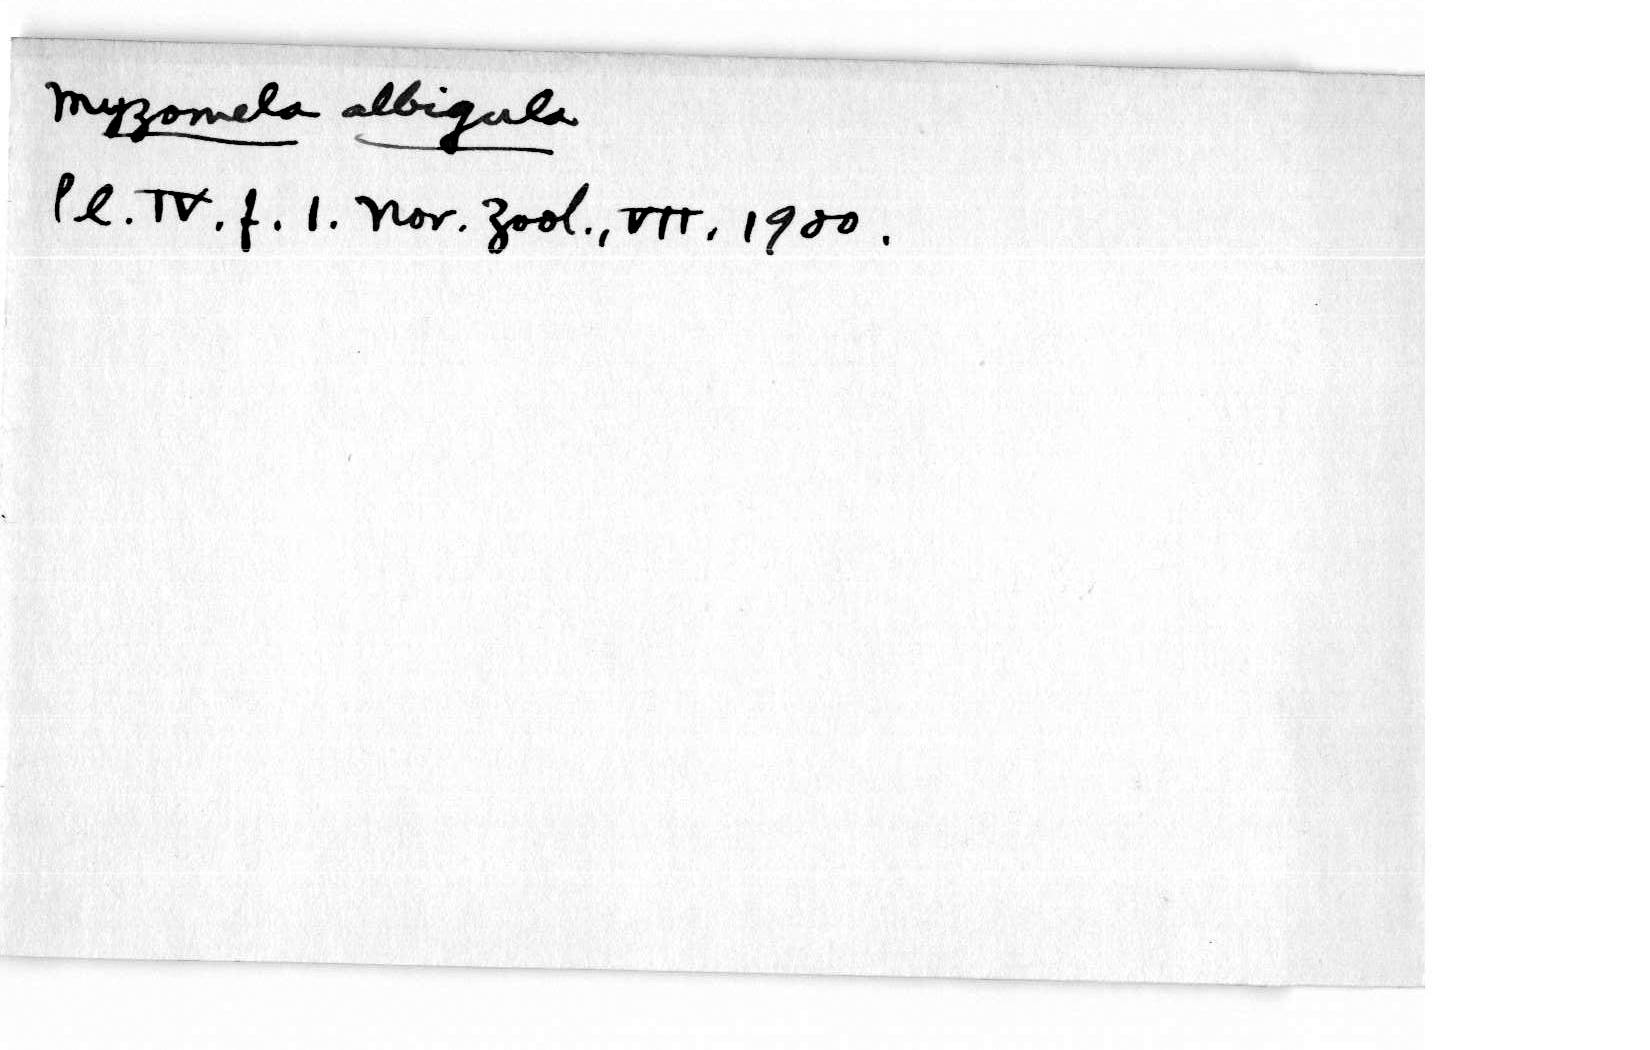 Myzomela albigula
Pl. IV. f. 1. Nov. Zool., VII, 1900.